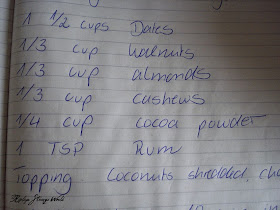 1 1/2 cups Dates
1/3 cup walnuts
1/3 cup almonds
1/3 cup cashews
1/4 cup cocoa powder
1 TSP Rum
Topping Coconuts shredded,